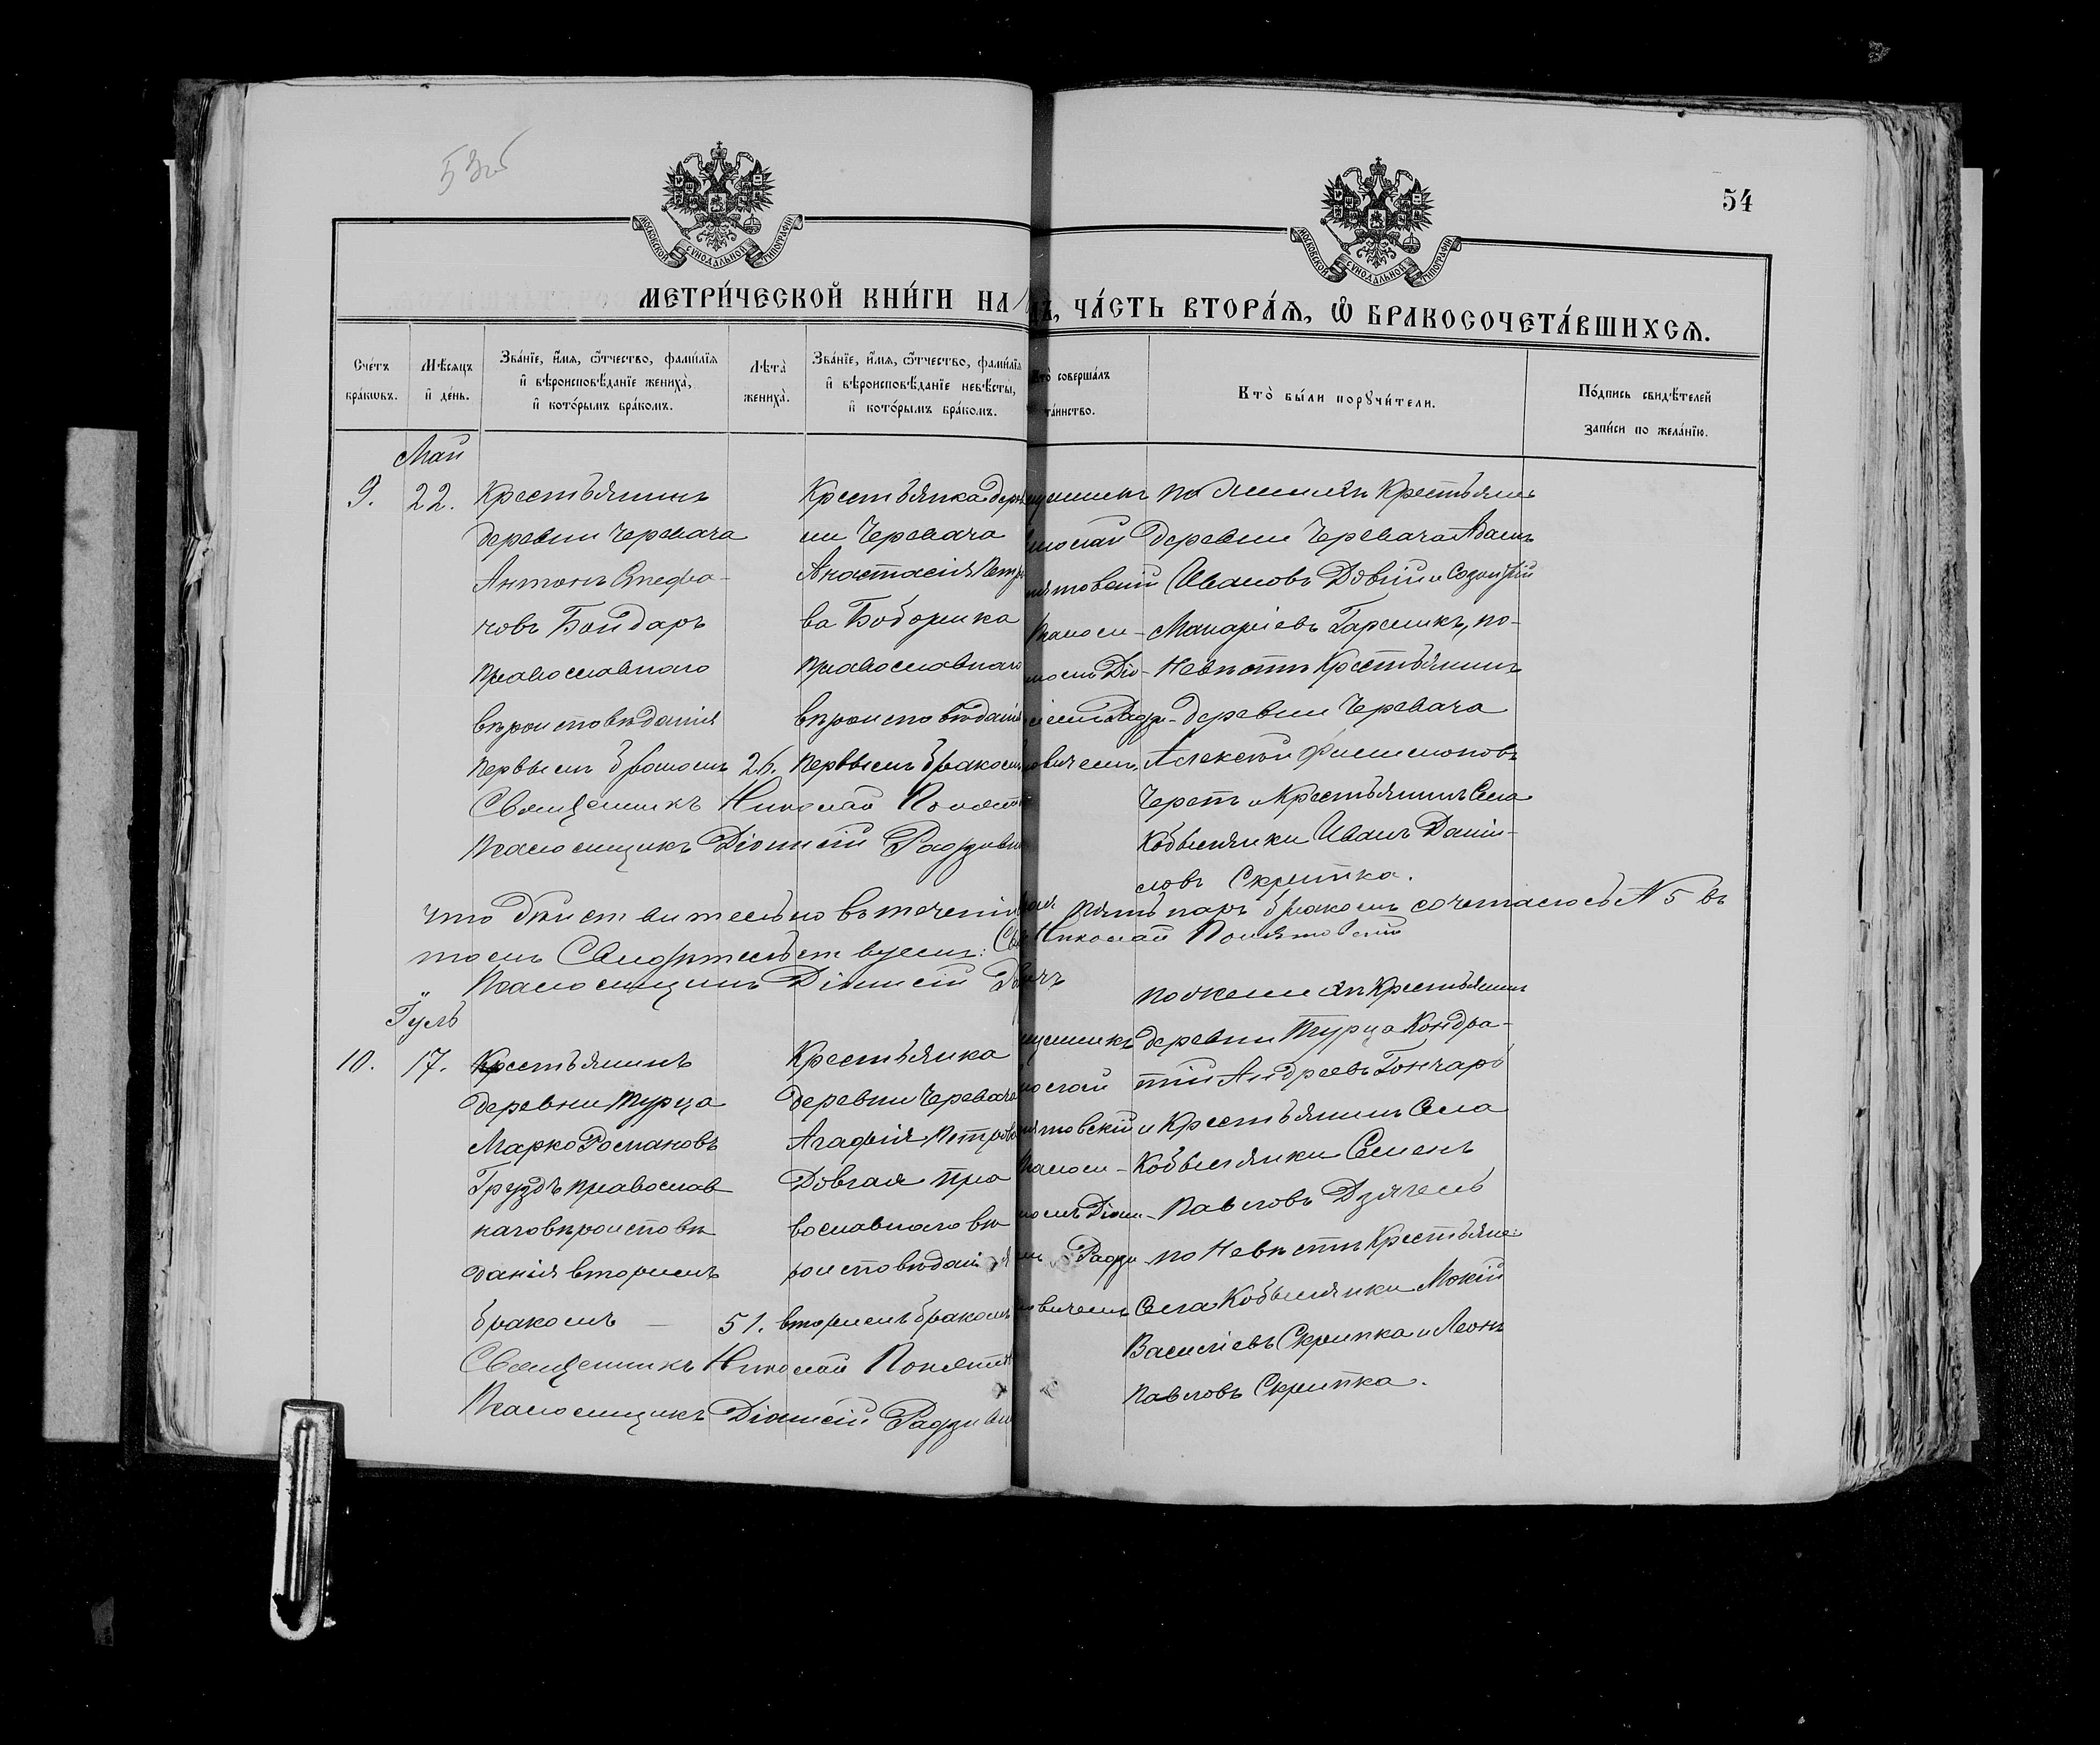 53об
54
МОСКОВСКОЙ СУНОДАЛЬНОЙ ТИПОГРАФІИ
МОСКОВСКОЙ СУНОДАЛЬНОЙ ТИПОГРАФІИ
МЕТРИ́ЧЕСКОЙ КНИ́ГИ НА
ЧА́СТЬ ВТОРА́Ѧ, Ѽ БРАКОСОЧЕТА́ВШИХСѦ.
Сче́тъ бра́кѡвъ.
Мѣ́сяцъ и҆ де́нь.
Зва́нїе, и҆́мѧ, ѻ҆́тчество, фами́лїѧ и҆ вѣроисповѣ́данїе жениха̀, и҆ кото́рымъ бра́комъ.
Лѣ́та̀ жениха̀.
Зва́нїе, и҆́мѧ, ѻ҆́тчество, фами́лїѧ и҆ вѣроисповѣ́данїе невѣ́сты, и҆ кото́рымъ бра́комъ.
Кто̀ соверша́лъ та́инство.
Кто̀ бы́ли порꙋчи́тели.
По́дпись свидѣ́телей за́писи по жела́нїю.
Май
9.
22.
Крестьянинъ
деревни Черевача
Антонъ Стефа-
новъ Бондаръ
православнаго
вѣроисповѣданія
первымъ бракомъ
26.
Крестьянка дерев
ни Черевача
Анастасія Петро
ва Боборика
православнаго
вѣроисповѣданія
первымъ бракомъ
щенникъ
колай
нятовскій
Псаломщ-
комъ Діо-
Радзи-
овичемъ
по Женихѣ Крестьяне
деревни Черевача Адамъ
Ивановъ Довгій и
Макаріевъ Гарминъ, по-
Невѣстѣ Крестьянинъ
деревни Черевача
Алексѣй Филимоновъ
и Крестьянинъ Села
Кобылянки Иванъ Даніи-
ловъ Скрипка.
Священникъ Николай Понят
Псаломщикъ Діонисій Радзиви
что дѣйствительно въ теченіи
пять паръ бракомъ сочеталось № 5 въ
томъ Свидѣтельствуемъ: Св
Николай Понятовскій
Псаломщикъ Діонисій
Іуль
10.
17.
Крестьянинъ
деревни Турца
Марко Романовъ
Груздъ православ
наго вѣроисповѣ
данія вторымъ
бракомъ
51.
Крестьянка
деревни Черевача
Агафія Петрова
Довгая пра
вославнаго вѣ
роисповѣданія
вторымъ бракомъ
щенникъ
колай
нятовскій
Псаломщ-
комъ Діони-
Радзи
вичемъ
по Женихѣ Крестьянинъ
деревни Турца Кондра-
тій Андреевъ Гончаръ
и Крестьянинъ Села
Кобылянки Семенъ
Павловъ Дзягель
по Невѣстѣ Крестьяне
Села Кобылянки Мокій
Василіевъ Скрипка и Леонъ
Павловъ Скрипка.
Священникъ Николай Понятов
Псаломщикъ Діонисій Радзиви